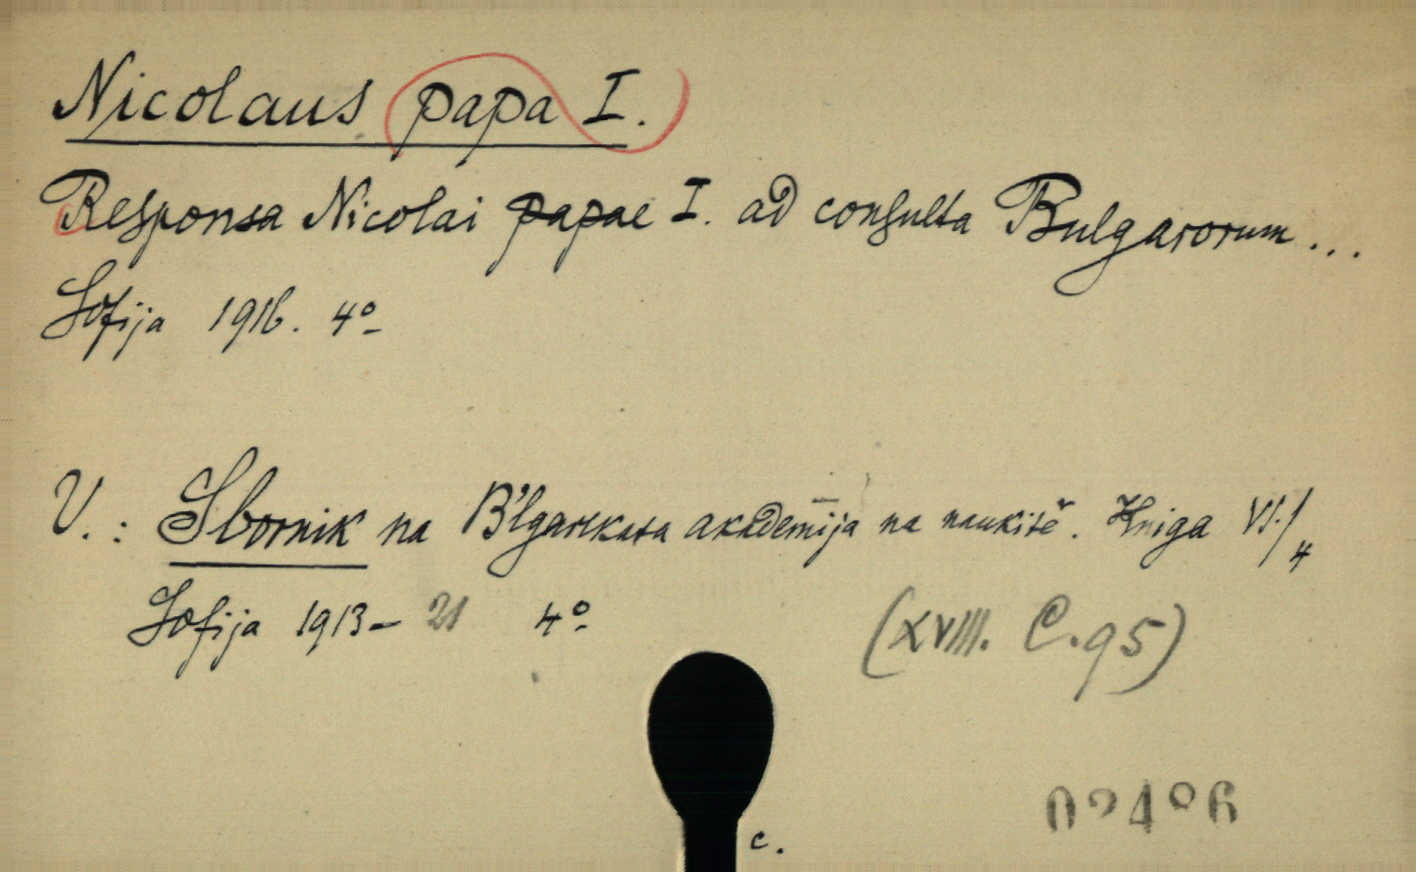 Nicolaus papa I.
Responsa Nicolai papae I. ad consulta Bulgarorum ...
Sofija 1916. 4º
V.: Sbornik na B'lgarskata akademija na naukitě. Kniga VI./4
Sofija 1913- 21 4º
(XVIII. C. 95)
c.